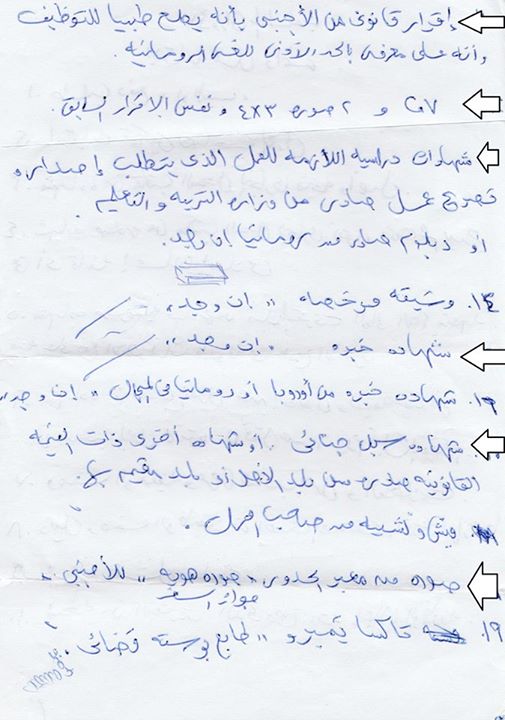 إقرار قانوني من الأجنبي بأنه يصلح طبيا للتوظيف
وأنه على معرفة بالحد الأدنى للغة الرومانية.
و ٢ صورة ٤x٣ و نفس الإقرار السابق.
شهادات دراسية اللازمة للعمل الذي يتطلب إصداره
تصريح عمل صادر من وزارة التربية و التعليم.
أو دبلوم صادر من رومانيا إن وجد.
١٤. وثيقة مرخصة "إن وجد"
شهادة خبرة "إن وجد"
١٦. شهادة خبرة من أوروبا أو رومانيا في المجال "إن وجد"
شهادة سجل جنائي. أو شهادة أخرى ذات القيمة
القانونية صادرة من بلد الأصل أو بلد مقيم بها.
من صاحب العمل.
صورة من معبر الحدود، "للأجنبي".
جواز السفر
١٩. تاكسا تيمبرو "طابع بوستة قضائي".